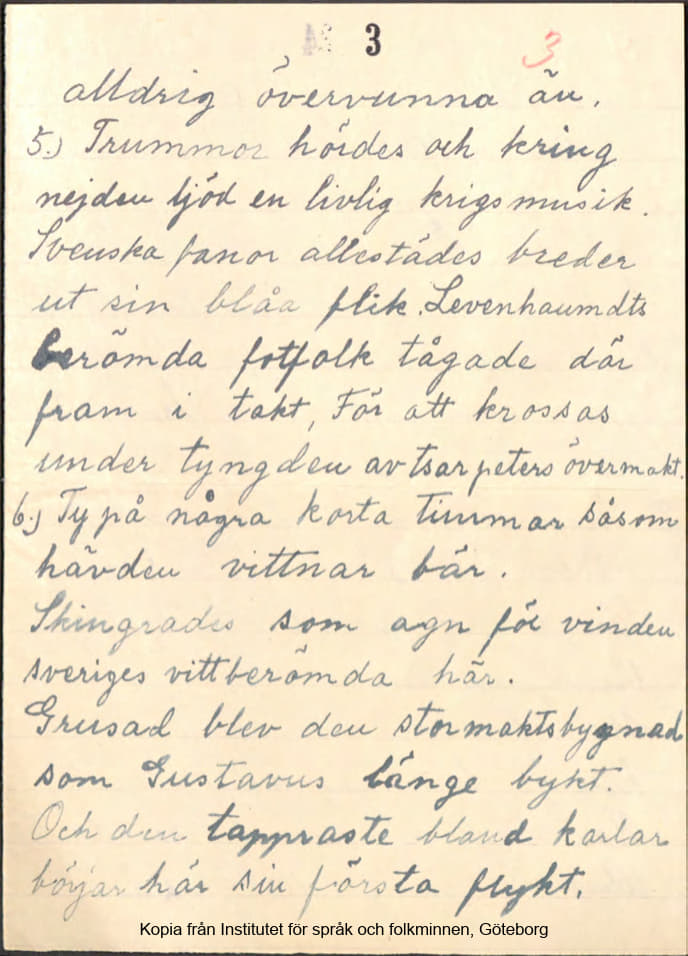 3 3
alldrig övervunna än.
5.) Trummor hördes och kring
nejden ljöd en livlig krigsmusik.
Svenska fanor allestädes breder
ut sin blåa flik. Levenhaumdts
berömda fotfolk tågade där
fram i takt, För att krossas
under tyngden av tsar peters övermakt.
6.) Ty på några korta timmar såsom
hävden vittnar bär.
Skingrades som agn för vinden
sveriges vittberömda här.
Grusad blev den stormaktsbygnad
som Gustavus länge bykt.
Och den tappraste bland karlar
börjar här sin första flykt.
Kopia från Institutet för språk och folkminnen, Göteborg